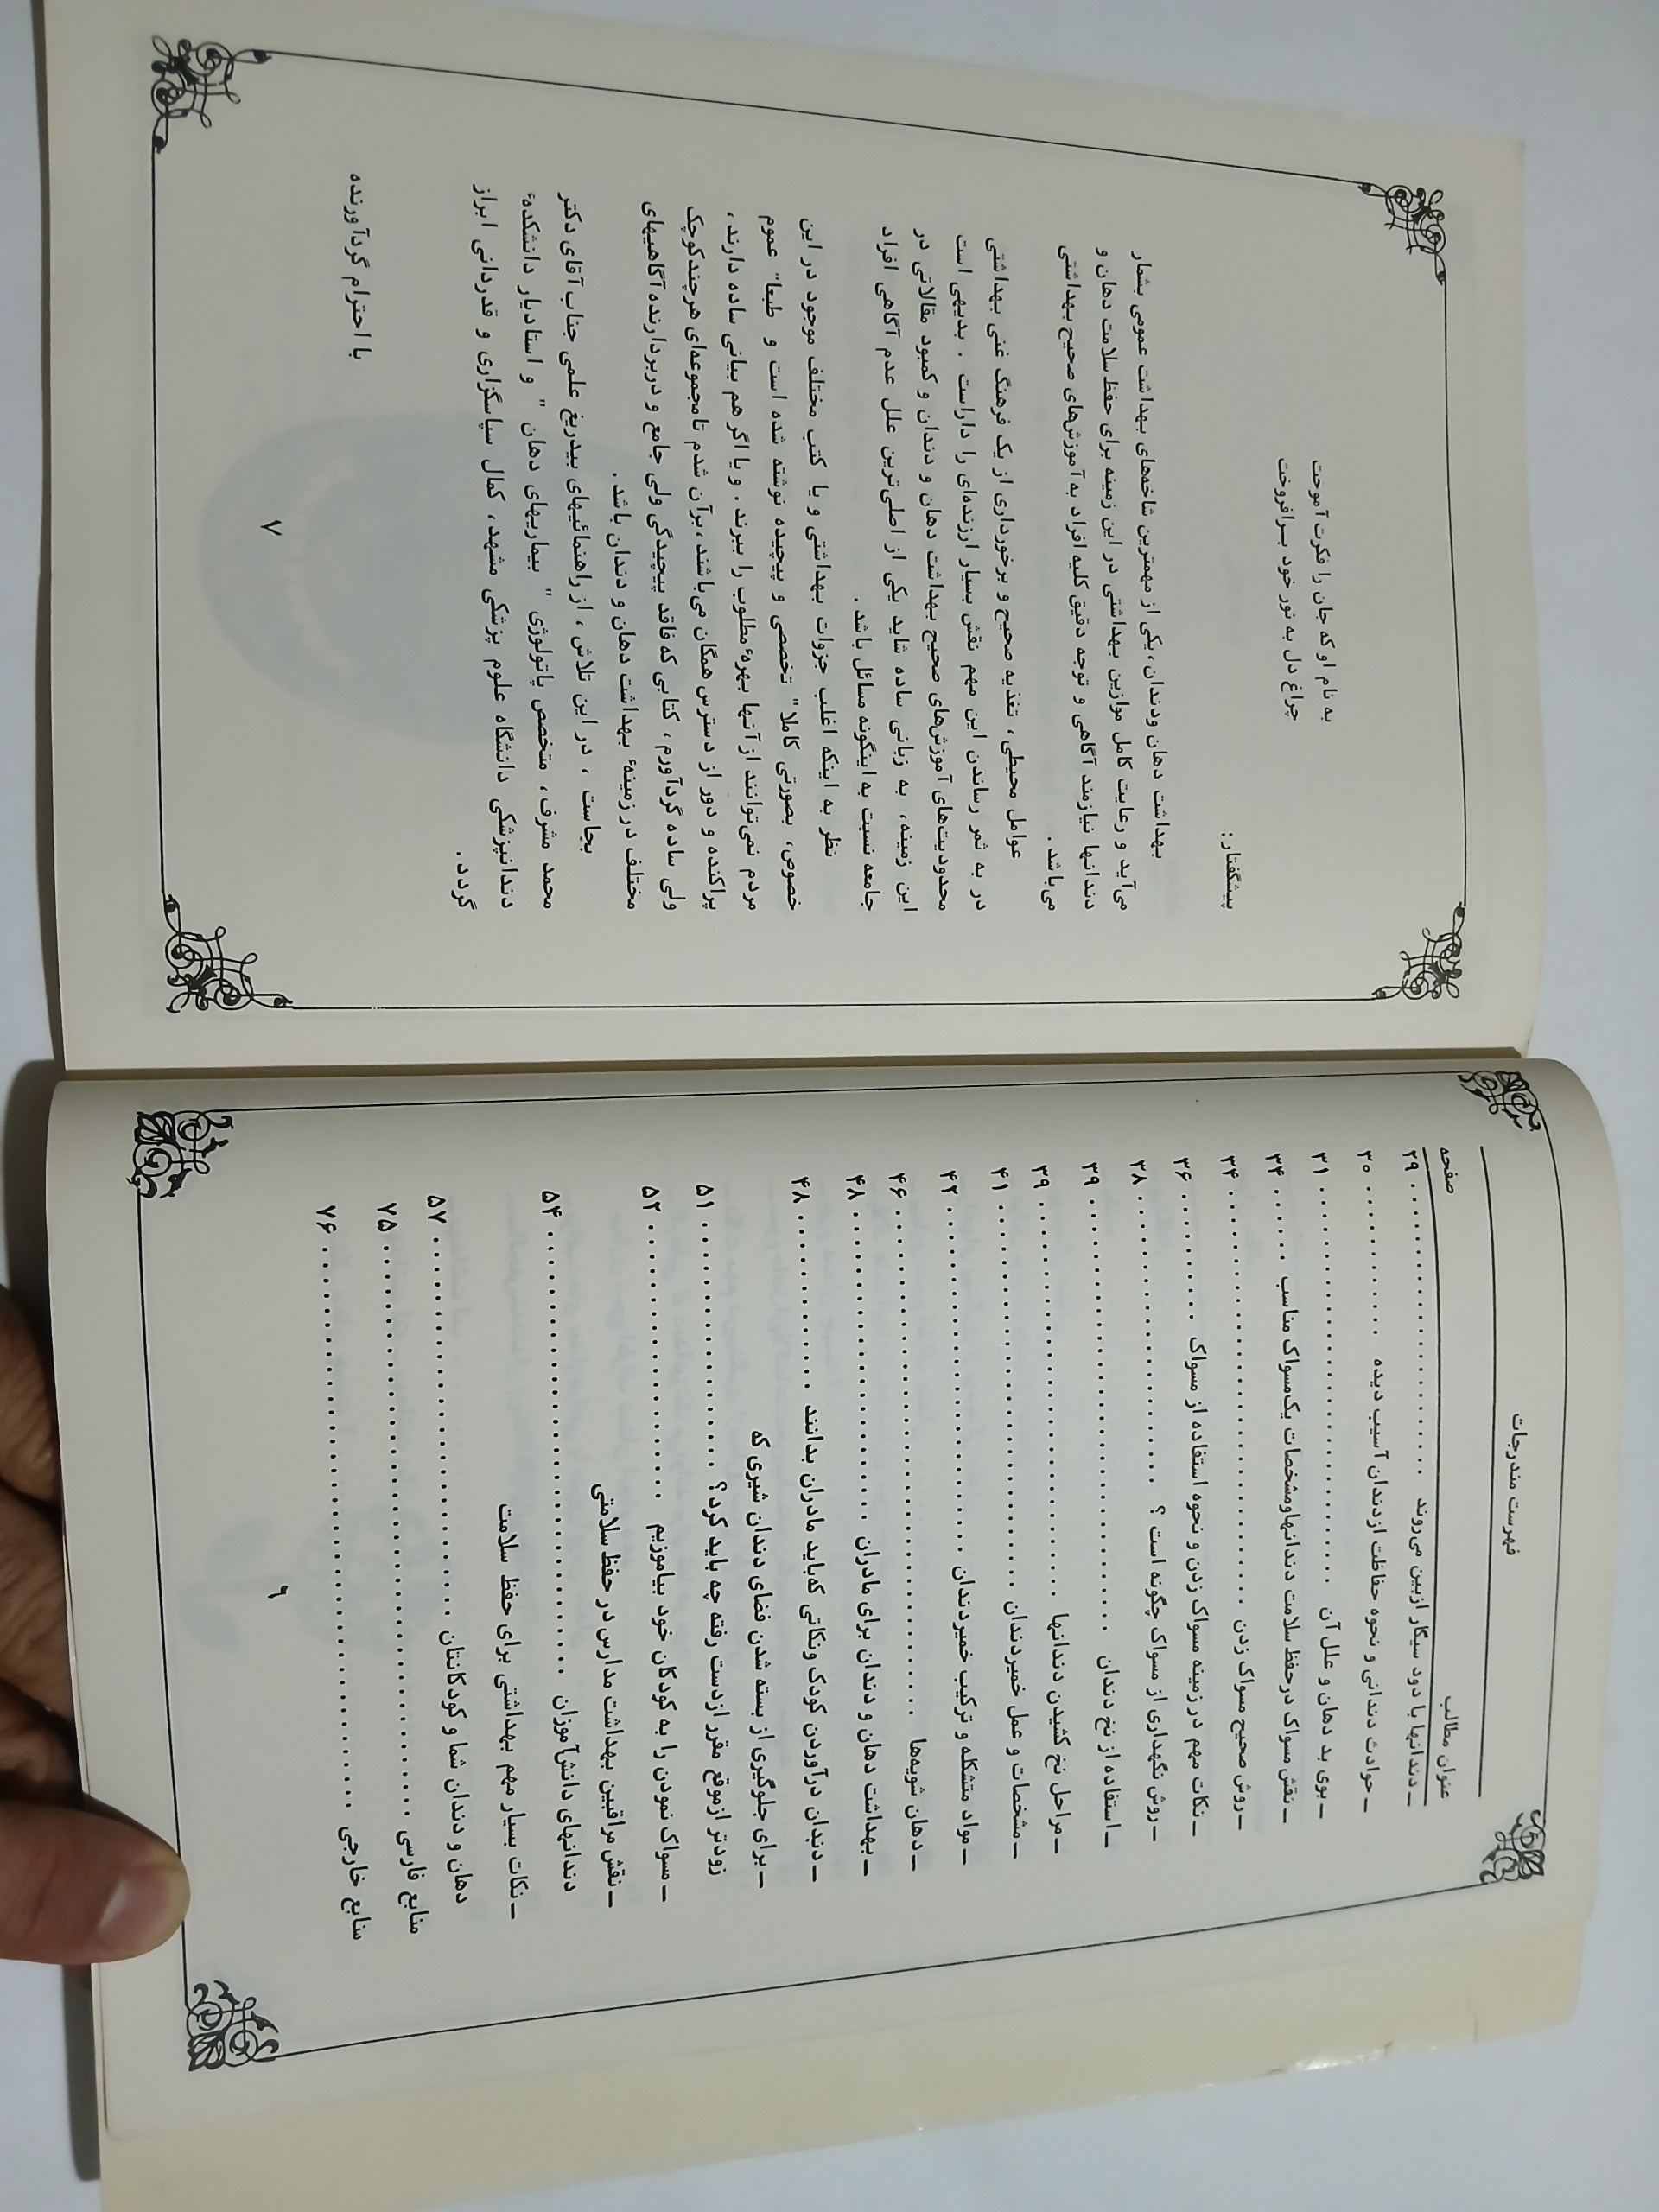 فهرست مندرجات
عنوان مطالب صفحه
ـ دندانها با دود سیگار ازبین می‌روند ۲۹
ـ حوادث دندانی و نحوه حفاظت ازدندان آسیب دیده ۳۰
ـ بوی بد دهان و علل آن ۳۱
ـ نقش مسواک درحفظ سلامت دندانهاومشخصات یک‌مسواک مناسب ۳۴
ـ روش صحیح مسواک زدن ۳۴
ـ نکات مهم در زمینه مسواک زدن و نحوه استفاده از مسواک ۳۶
ـ روش نگهداری از مسواک چگونه است ؟ ۳۸
ـ استفاده از نخ دندان ۳۹
ـ مراحل نخ کشیدن دندانها ۳۹
ـ مشخصات و عمل خمیردندان ۴۱
ـ مواد متشکله و ترکیب خمیردندان ۴۲
ـ دهان شویه‌ها ۴۶
ـ بهداشت دهان و دندان برای مادران ۴۸
ـ دندان درآوردن کودک ونکاتی که‌باید مادران بدانند ۴۸
ـ برای جلوگیری از بسته شدن فضای دندان شیری که
زودتر ازموقع مقرر ازدست رفته چه باید کرد؟ ۵۱
ـ مسواک نمودن را به کودکان خود بیاموزیم ۵۲
ـ نقش مراقبین بهداشت مدارس در حفظ سلامتی
دندانهای دانش‌آموزان ۵۴
ـ نکات بسیار مهم بهداشتی برای حفظ سلامت
دهان و دندان شما و کودکانتان ۵۷
منابع فارسی ۷۵
منابع خارجی ۷۶
۶
به نام او که جان را فکرت آموخت
چراغ دل به نور خود بـرافروخت
پیشگفتار:
بهداشت دهان ودندان، یکی از مهمترین شاخه‌های بهداشت عمومی بشمار
می‌آید و رعایت کامل موازین بهداشتی در این زمینه برای حفظ سلامت دهان و
دندانها نیازمند آگاهی و توجه دقیق کلیه افراد به آموزش‌های صحیح بهداشتی
می‌باشد.
عوامل محیطی، تغذیه صحیح و برخورداری از یک فرهنگ غنی بهداشتی
در به ثمر رساندن این مهم نقش بسیار ارزنده‌ای را داراست . بدیهی است
محدودیت‌های آموزش‌های صحیح بهداشت دهان و دندان و کمبود مقالاتی در
این زمینه، به زبانی ساده شاید یکی از اصلی‌ترین علل عدم آگاهی افراد
جامعه نسبت به اینگونه مسائل باشد.
نظر به اینکه اغلب جزوات بهداشتی و یا کتب مختلف موجود در این
خصوص، بصورتی کاملا" تخصصی و پیچیده نوشته شده است و طبعا" عموم
مردم نمی‌توانند از آنها بهره‌ٔ مطلوب را ببرند . و یا اگر هم بیانی ساده دارند،
پراکنده و دور از دسترس همگان می‌باشند، برآن شدم تامجموعه‌ای هرچندکوچک
ولی ساده گردآورم، کتابی که فاقد پیچیدگی ولی جامع و دربردارنده آگاهیهای
مختلف در زمینهٔ بهداشت دهان و دندان باشد.
بجاست ، در این تلاش ، از راهنمائیهای بیدریغ علمی جناب آقای دکتر
محمد مشرف، متخصص پاتولوژی " بیماریهای دهان " و استادیار دانشکدهٔ
دندانپزشکی دانشگاه علوم پزشکی مشهد، کمال سپاسگزاری و قدردانی ابراز
گردد.
با احترام گردآورنده
۷